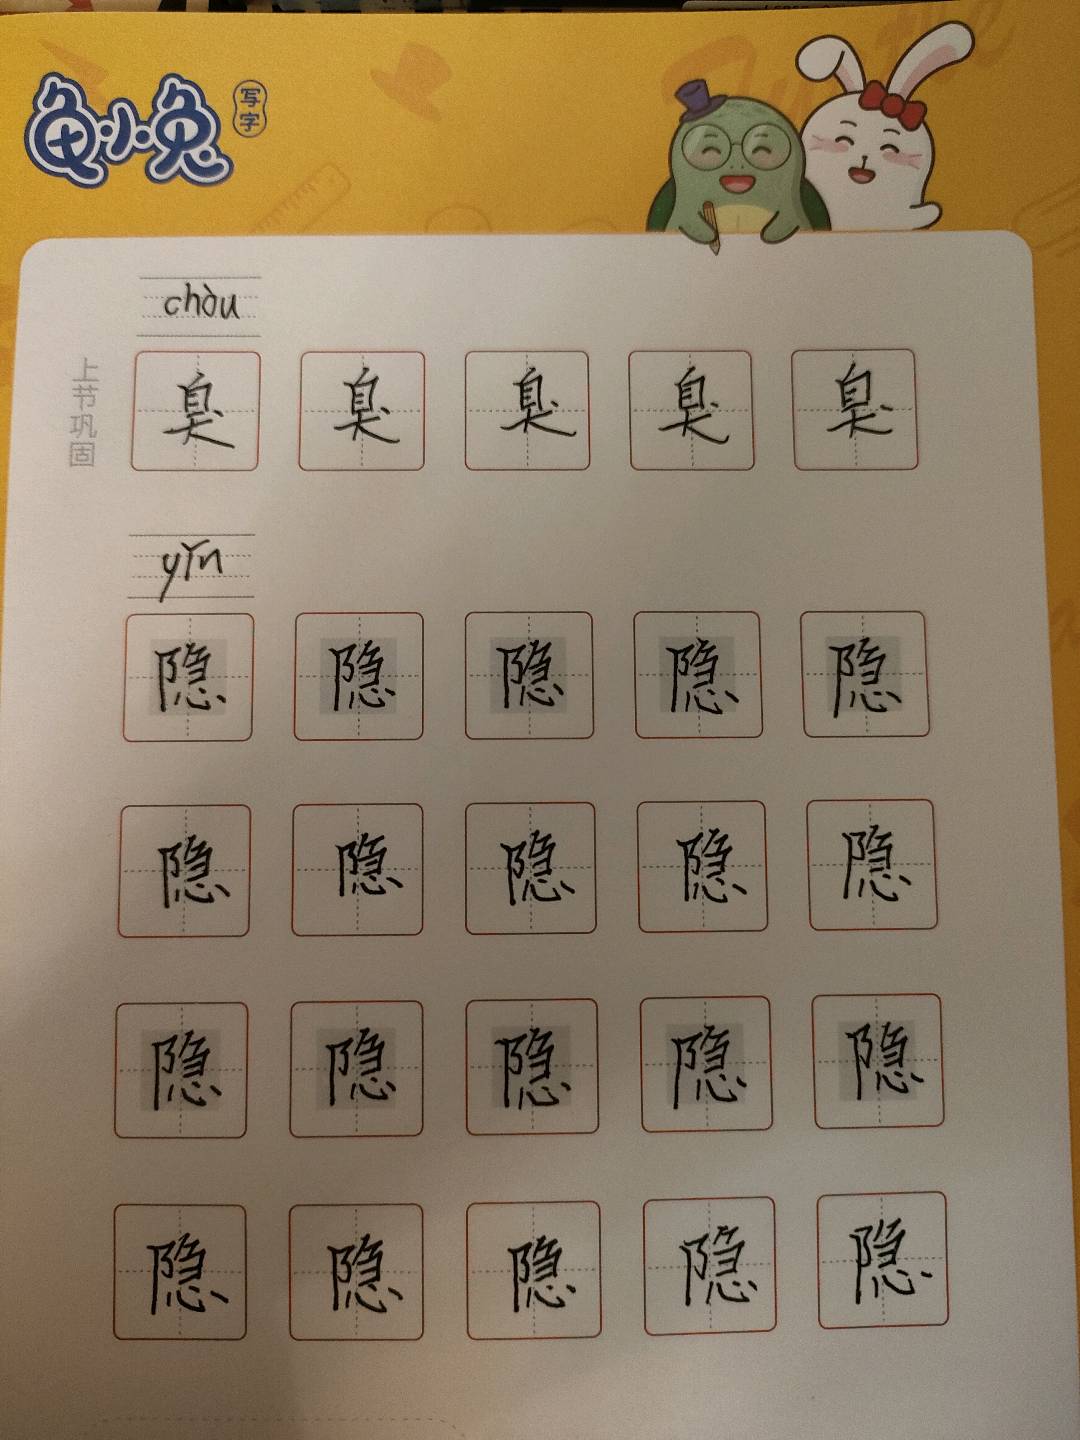 龟小兔 写字
chòu
上节巩固
臭 臭 臭 臭 臭
yǐn
隐 隐 隐 隐 隐
隐 隐 隐 隐 隐
隐 隐 隐 隐 隐
隐 隐 隐 隐 隐